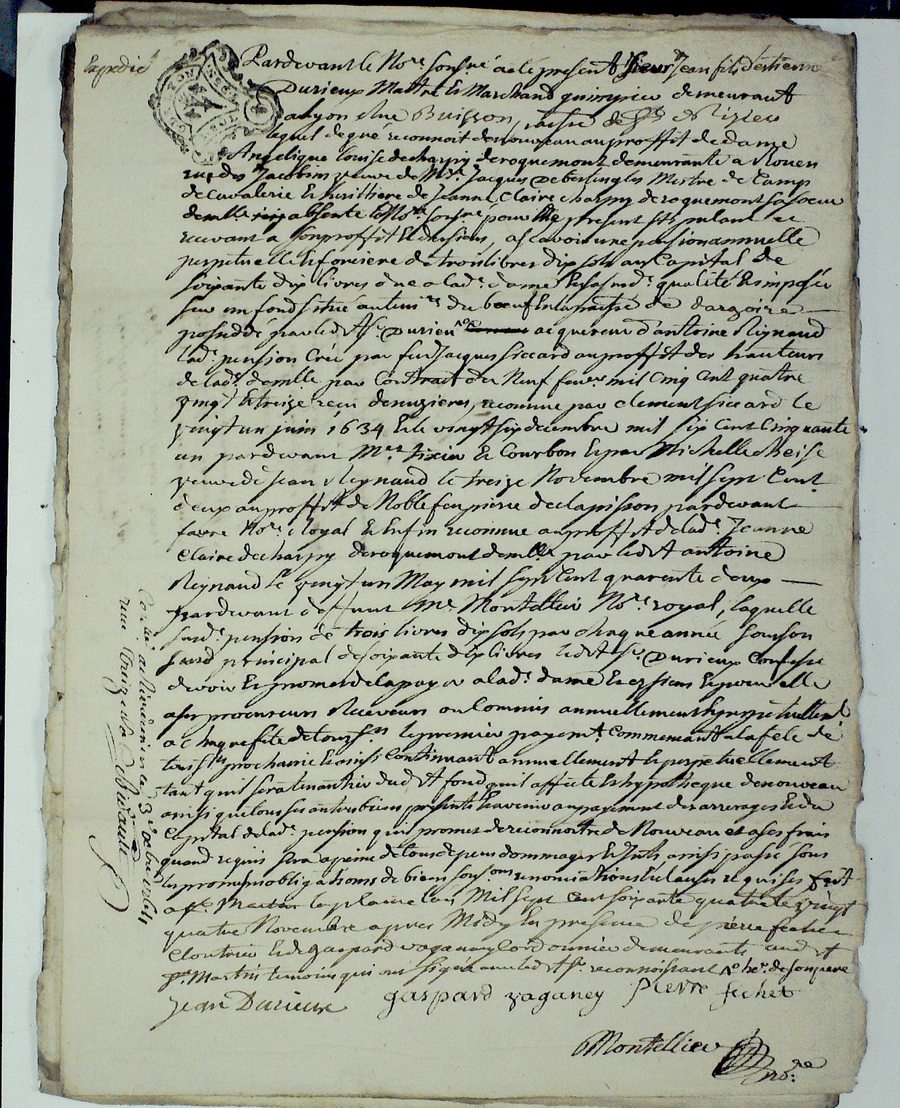 Expedié
Pardevant le Nore. sousné. a eté present Sieur Jean fils d'estienne
Durieux Maitre et Marchand guimpier demeurant
a Lyon rue Buisson, paroisse de St. Nizier
lequel de gré reconnoit de nouveau au proffit de dame
Angelique Louise decharpy de roquemont demeurante a Rouen
rue des Jacobins veuve de Mre. Jacques de bersinglés Mestre de Camp
de Cavalerie et heritiere de Jeanne Claire charpy de roquemont sa soeur
demlle absente le Nore. sousné pour elle present stipulant et
recevant a son proffit et des siens, ascavoir une pension annuelle
perpetuelle et fonciere de trois livres dix sols au Capital de
soixante dix livres due a lade. dame en sa sude. qualité et imposée
sur un fond situé au terre. du boeuf en la paroisse de dargoire
possedé par led. Sr. Durieu acquereur d'antoine Reynaud
lade. pension créé par feu Jacques siccard au proffit des hauteurs
de lade. demlle par Contrat du Neuf fevrer mil cinq cent quatre
vingt et treize receu deruzieres, reconnue par clement siccard le
vingt un juin 1634 et le vingt six decembre mil six cent Cinquante
un pardevant Mes. Tixier et Courbon et par Michelle Beise
veuve de Jean Reynaud le treize Novembre mil sept cent
deux au proffit de Noble feu pierre de clapisson pardevant
favre Nore. Royal et Enfin reconnue au proffit de lade. Jeanne
Claire decharpy de roquemont demlle. par led. antoine
Reynaud le vingt un May mil sept cent quarente deux
pardevant deffunt Me. Montellier Nore. royal, laquelle
sude. pension de trois livres dix sols par chaque année sous son
susd. principal de soixante dix livres led. Sr. Durieux Confesse
devoir et promet de la payer a lade. dame et es siens et pour elle
a ses procureurs Receveurs ou Commis annuellement et perpetuellemt.
a chaque fête de toussts. le premier payemt. Commencant a la fete de
toussts. prochaine et ainsi Continuant annuellement et perpetuellement
tant quil sera tenancier dud. fond quil affecte et hypotheque de nouveau
ainsi que tous ses autres biens presents et avenir au payement des arrerages et du
Capital de lade. pension qui promet de reconnoitre de Nouveau et a ses frais
quand requis sera a peine de tous depens dommages et Intts. ainsi passé sous
les promesses obligations de biens soumons. renonciations et clauses requises fait
a St. Martin la plaine l'an Mil sept cent soixante quatre le vingt
quatre Novembre apres Midy En presence de pierre fechet
Cloutier et de gaspard vaganey Cordonnier demeurants aud.
St. Martin temoins qui ont signé avec led. Sr. reconnoissant
Jean Durieux gaspard vaganey pierre fechet
Montellier nore.
Controllé a Rivedegier ce 3e. Xbre 1764
reçu treize sols